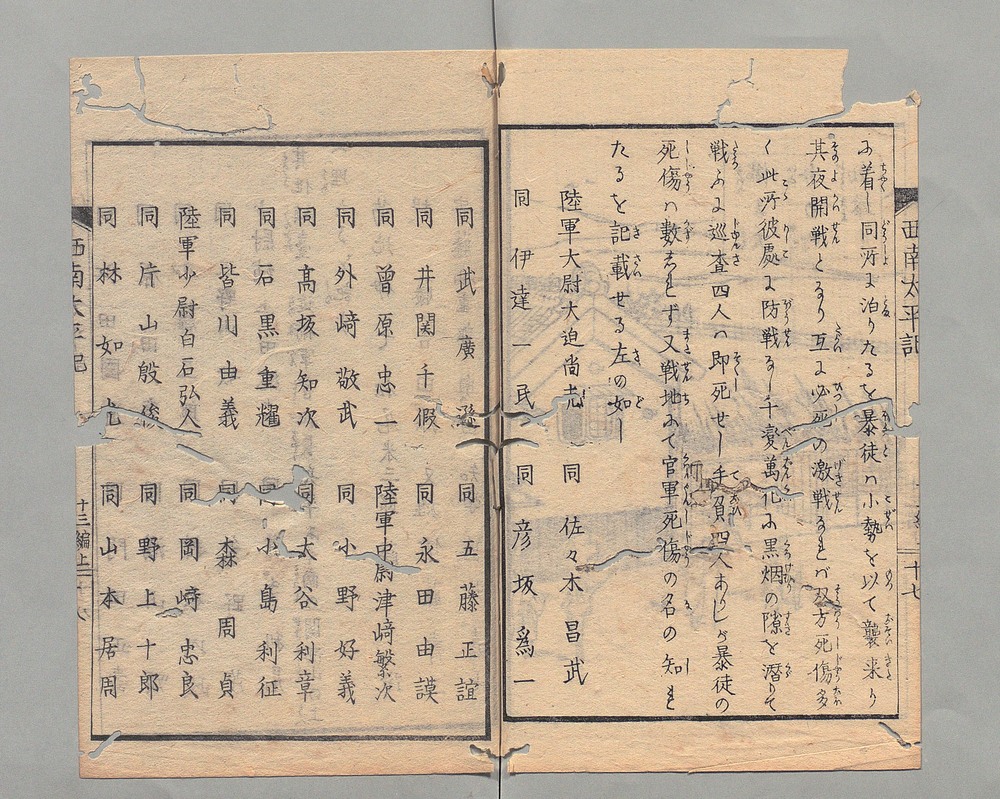 西南太平記
に着し同所に泊りたるを暴徒ハ小勢を以て襲来り
其夜開戦となり互に必死の激戦なれバ双方死傷多
く此所彼處に防戦なし千変萬化に黒烟の隙を潜りて
戦ふに巡査四人ハ即死せし手負四人ありしが暴徒の
死傷ハ数志れず又戦地にて官軍死傷の名の知れ
たるを記載せる左の如し
陸軍大尉大迫尚志 同 佐々木昌武
同 伊達一民 同 彦坂為一
同 武廣遜 同 五藤正誼
同 井関千假 同 永田由謨
同 曽原忠一 陸軍中尉津﨑繁次
同 外﨑敬武 同 小野好義
同 髙坂知次 同 太谷利章
同 石黒重耀 同 小島利征
同 皆川由義 同 森周貞
陸軍少尉白石弘人 同 岡﨑忠良
同 片山殷 同 野上十郎
同 林如 同 山本居周
西南太平記 十三編上